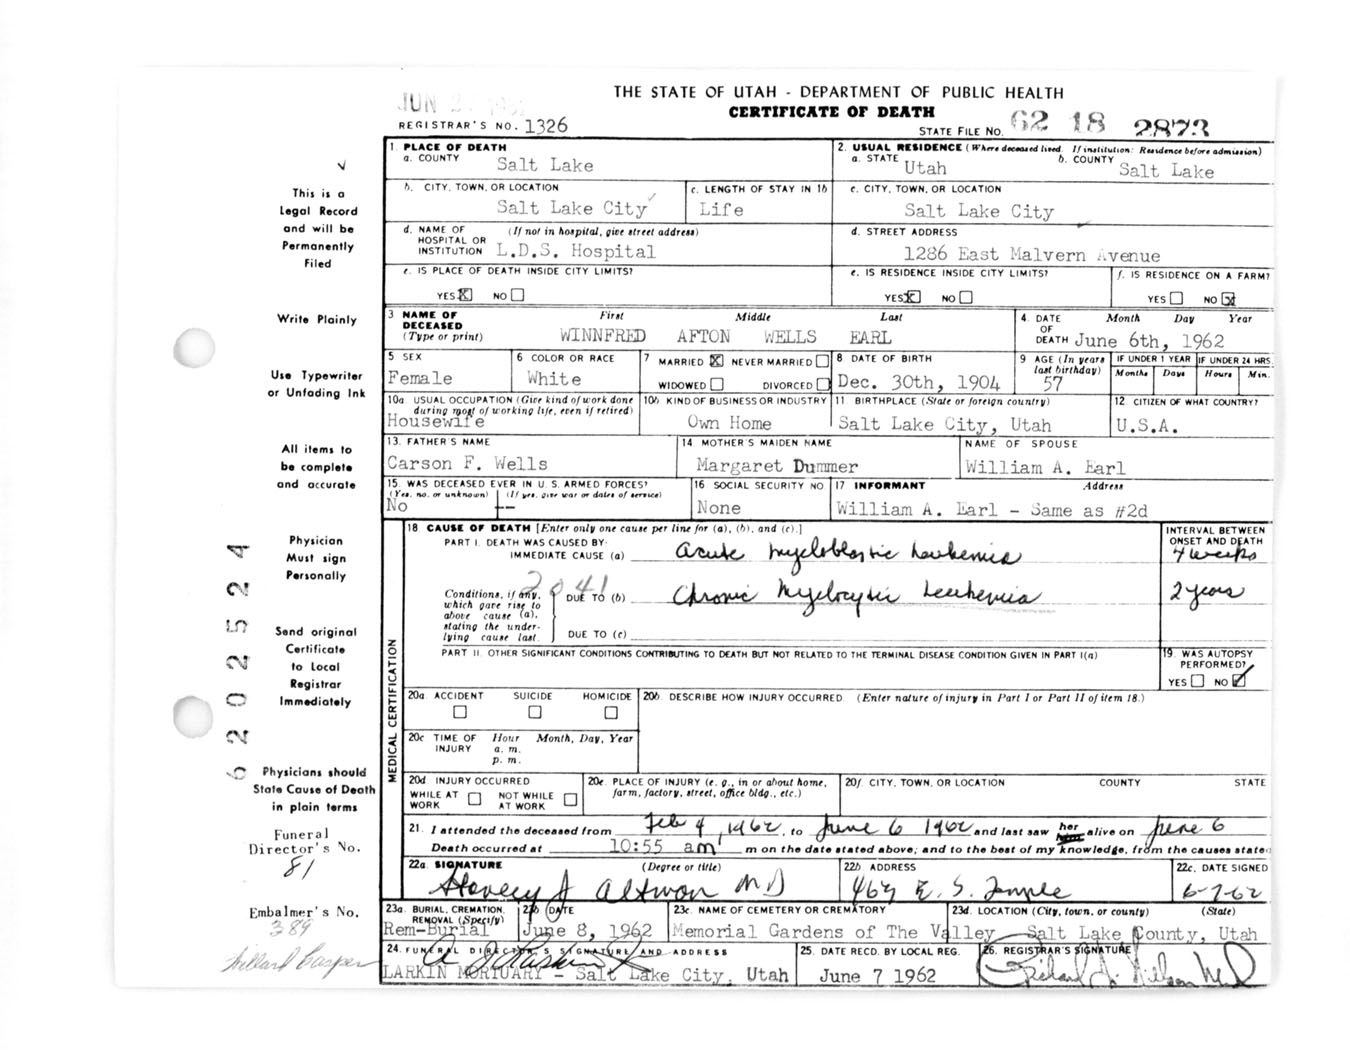 THE STATE OF UTAH - DEPARTMENT OF PUBLIC HEALTH
CERTIFICATE OF DEATH
REGISTRAR'S NO. 1326
STATE FILE NO. 62 18 2873
This is a
Legal Record
and will be
Permanently
Filed
Write Plainly
Use Typewriter
or Unfading Ink
All items to
be complete
and accurate
Physician
Must sign
Personally
Send original
Certificate
to Local
Registrar
Immediately
Physicians should
State Cause of Death
in plain terms
Funeral
Director's No.
81
Embalmer's No.
389
Willard Casper
6 2 0 2 5 2 4
1. PLACE OF DEATH
a. COUNTY Salt Lake
2. USUAL RESIDENCE (Where deceased lived. If institution: Residence before admission)
a. STATE Utah b. COUNTY Salt Lake
b. CITY, TOWN, OR LOCATION Salt Lake City
c. LENGTH OF STAY IN 1b Life
c. CITY, TOWN, OR LOCATION Salt Lake City
d. NAME OF HOSPITAL OR INSTITUTION (If not in hospital, give street address) L.D.S. Hospital
d. STREET ADDRESS 1286 East Malvern Avenue
e. IS PLACE OF DEATH INSIDE CITY LIMITS? YES X NO
e. IS RESIDENCE INSIDE CITY LIMITS? YES X NO
f. IS RESIDENCE ON A FARM? YES NO X
3 NAME OF DECEASED (Type or print) First Middle Last
WINNFRED AFTON WELLS EARL
4. DATE OF DEATH Month Day Year
June 6th, 1962
5 SEX Female
6 COLOR OR RACE White
7 MARRIED X NEVER MARRIED WIDOWED DIVORCED
8 DATE OF BIRTH Dec. 30th, 1904
9 AGE (In years last birthday) 57
IF UNDER 1 YEAR Months Days
IF UNDER 24 HRS. Hours Min.
10a. USUAL OCCUPATION (Give kind of work done during most of working life, even if retired) Housewife
10b KIND OF BUSINESS OR INDUSTRY Own Home
11 BIRTHPLACE (State or foreign country) Salt Lake City, Utah
12 CITIZEN OF WHAT COUNTRY? U.S.A.
13. FATHER'S NAME Carson F. Wells
14 MOTHER'S MAIDEN NAME Margaret Dummer
NAME OF SPOUSE William A. Earl
15. WAS DECEASED EVER IN U.S. ARMED FORCES? (Yes, no, or unknown) (If yes, give war or dates of service) No --
16 SOCIAL SECURITY NO None
17 INFORMANT Address William A. Earl - Same as #2d
MEDICAL CERTIFICATION
18 CAUSE OF DEATH [Enter only one cause per line for (a), (b), and (c).]
INTERVAL BETWEEN ONSET AND DEATH
PART I. DEATH WAS CAUSED BY:
IMMEDIATE CAUSE (a) Acute Myeloblastic Leukemia 4 weeks
2041
Conditions, if any, which gave rise to above cause (a), stating the underlying cause last.
DUE TO (b) Chronic Myelocytic Leukemia 2 years
DUE TO (c)
PART II. OTHER SIGNIFICANT CONDITIONS CONTRIBUTING TO DEATH BUT NOT RELATED TO THE TERMINAL DISEASE CONDITION GIVEN IN PART I(a)
19. WAS AUTOPSY PERFORMED? YES NO
20a. ACCIDENT SUICIDE HOMICIDE
20b DESCRIBE HOW INJURY OCCURRED. (Enter nature of injury in Part I or Part II of item 18.)
20c TIME OF INJURY Hour Month, Day, Year a. m. p. m.
20d. INJURY OCCURRED WHILE AT WORK NOT WHILE AT WORK
20e. PLACE OF INJURY (e. g., in or about home, farm, factory, street, office bldg., etc.)
20f. CITY, TOWN, OR LOCATION COUNTY STATE
21. I attended the deceased from Feb 9, 1962, to June 6 1962 and last saw her alive on June 6
Death occurred at 10:55 am m on the date stated above; and to the best of my knowledge, from the causes state
22a. SIGNATURE (Degree or title) MD
22b ADDRESS
22c. DATE SIGNED 6-7-62
23a. BURIAL, CREMATION, REMOVAL (Specify) Rem-Burial
23b DATE June 8, 1962
23c. NAME OF CEMETERY OR CREMATORY Memorial Gardens of The Valley
23d. LOCATION (City, town, or county) (State) Salt Lake County, Utah
24. FUNERAL DIRECTOR'S SIGNATURE AND ADDRESS
LARKIN MORTUARY - Salt Lake City, Utah
25. DATE RECD. BY LOCAL REG. June 7 1962
26. REGISTRAR'S SIGNATURE